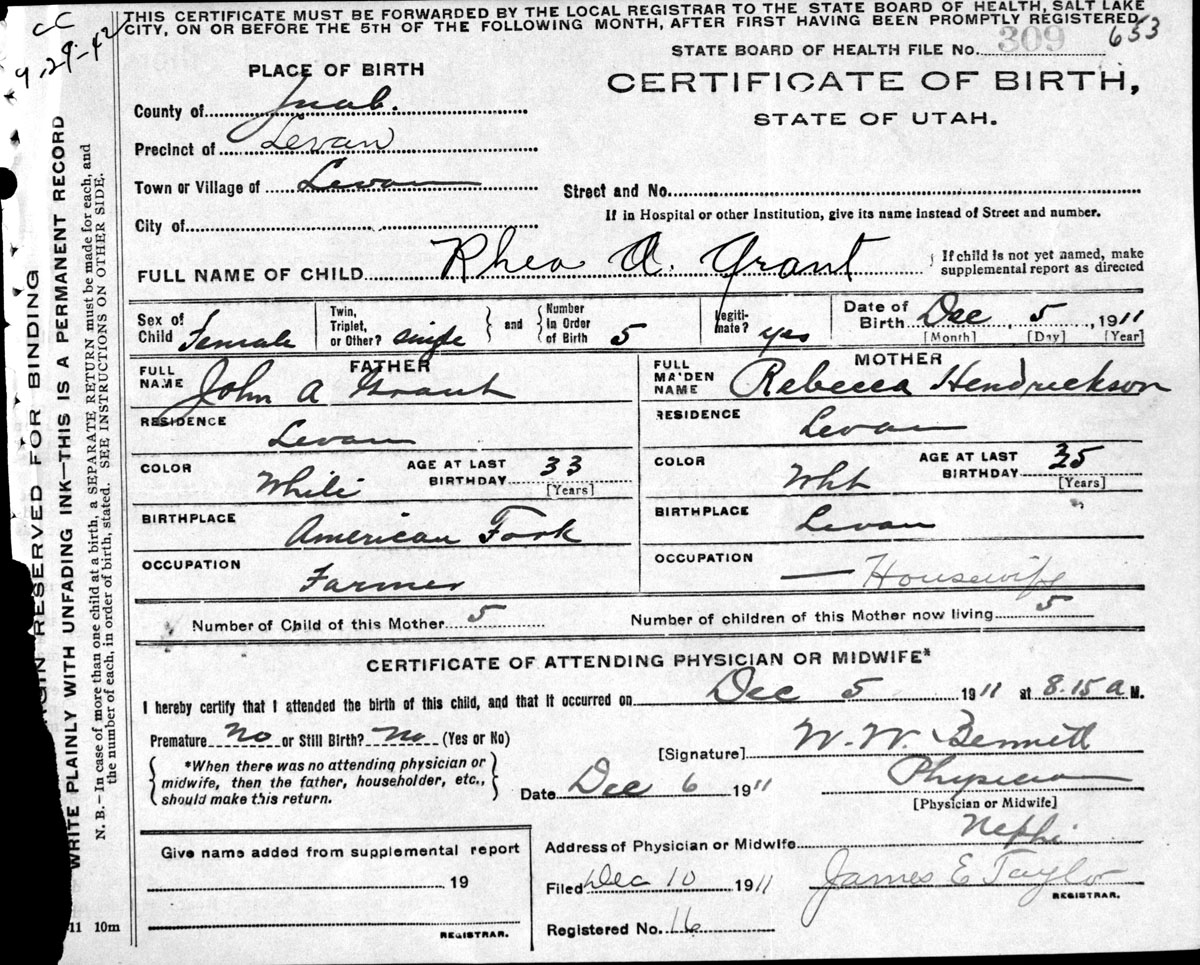 THIS CERTIFICATE MUST BE FORWARDED BY THE LOCAL REGISTRAR TO THE STATE BOARD OF HEALTH, SALT LAKE
CITY, ON OR BEFORE THE 5TH OF THE FOLLOWING MONTH, AFTER FIRST HAVING BEEN PROMPTLY REGISTERED.
CC
9-29-42
STATE BOARD OF HEALTH FILE No. 309 653
PLACE OF BIRTH
CERTIFICATE OF BIRTH,
STATE OF UTAH.
County of Juab.
Precinct of Levan
Town or Village of Levan
Street and No.
City of
If in Hospital or other Institution, give its name instead of Street and number.
FULL NAME OF CHILD Rhea A. Grant
If child is not yet named, make
supplemental report as directed
Sex of Child Female
Twin, Triplet, or Other? single and Number in Order of Birth 5
Legitimate? yes
Date of Birth Dec, 5, 1911
[Month] [Day] [Year]
FATHER
FULL NAME John A Grant
RESIDENCE Levan
COLOR White AGE AT LAST BIRTHDAY 33 [Years]
BIRTHPLACE American Fork
OCCUPATION Farmer
MOTHER
FULL MAIDEN NAME Rebecca Hendrickson
RESIDENCE Levan
COLOR Wht AGE AT LAST BIRTHDAY 35 [Years]
BIRTHPLACE Levan
OCCUPATION — Housewife
Number of Child of this Mother 5 Number of children of this Mother now living 5
CERTIFICATE OF ATTENDING PHYSICIAN OR MIDWIFE*
I hereby certify that I attended the birth of this child, and that it occurred on Dec 5 1911 at 8.15 a M.
Premature No or Still Birth? No (Yes or No)
[Signature] W. W. Bennett
*When there was no attending physician or
midwife, then the father, householder, etc.,
should make this return.
Date Dec 6 1911 Physician
[Physician or Midwife]
Give name added from supplemental report
19
REGISTRAR.
Address of Physician or Midwife Nephi
Filed Dec 10 1911 James E Taylor
REGISTRAR.
Registered No. 16
11 10m
RESERVED FOR BINDING
WRITE PLAINLY WITH UNFADING INK—THIS IS A PERMANENT RECORD
N. B.—In case of more than one child at a birth, a SEPARATE RETURN must be made for each, and
the number of each, in order of birth, stated. SEE INSTRUCTIONS ON OTHER SIDE.